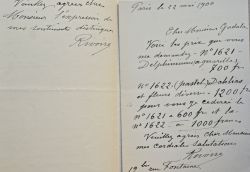 Veuillez agréer cher
Monsieur l'expression de
mes sentiments distingués
Paris le 22 mai 1900
Cher Monsieur
Voici les prix que vous
me demandez - N° 1621 -
Delphiniums aquarelles
700 fr.
N° 1622 (pastel) Dahlias
et fleurs divers - 1200 fr
pour vous je cederai le
N° 1621 à 600 fr et le
N° 1622 - à 1000 francs
Veuillez agréer cher Monsieur
mes cordiales salutations
19 rue Fontaine